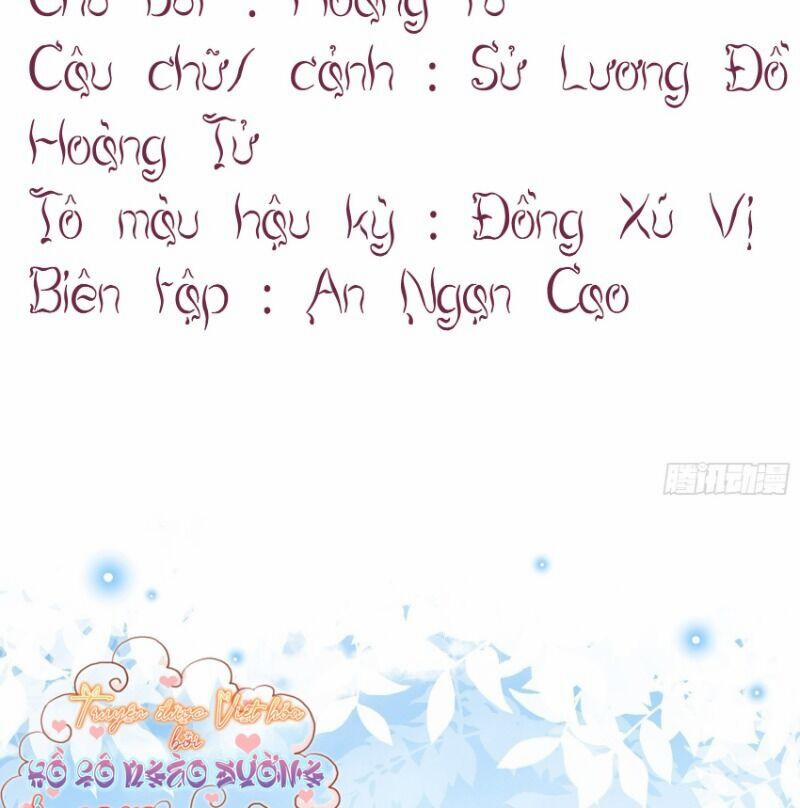 Chủ bút : Hoàng Tử
Câu chữ/ cảnh : Sử Lương Đồ
Hoàng Tử
Tô màu hậu kỳ : Đồng Xú Vị
Biên tập : An Ngạn Cao
腾讯动漫
Truyện được Việt hóa
bởi
HỒ LÔ NGÀO ĐƯỜNG